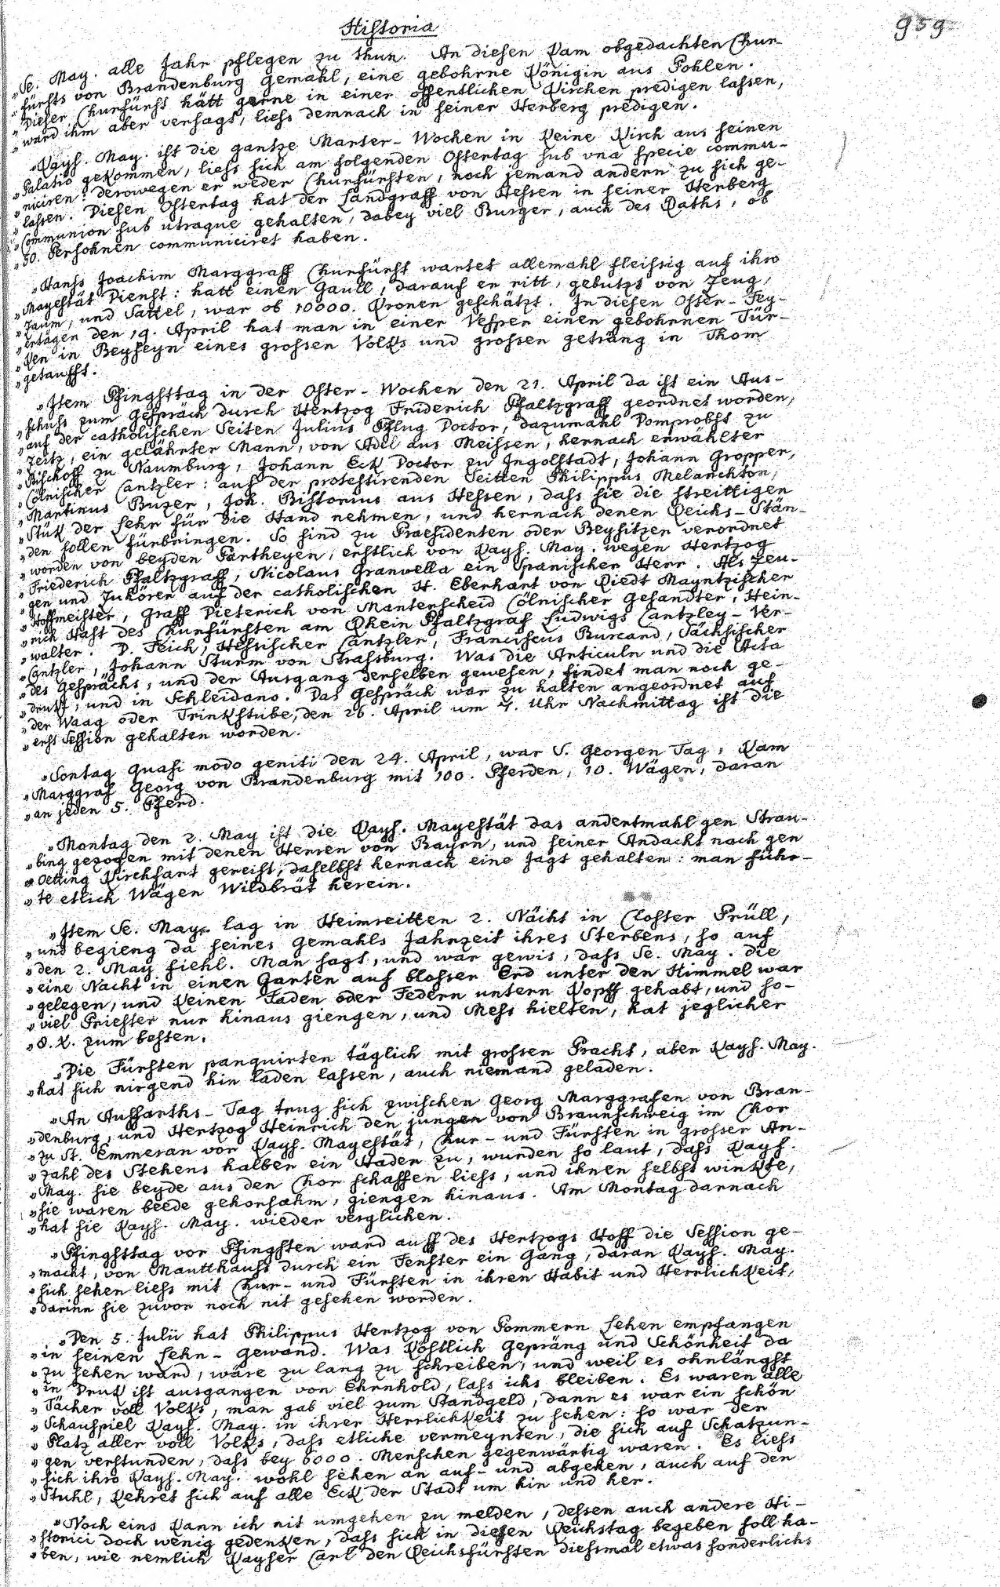 Historia
959
„Se. May. alle Jahr pflegen zu thun. An diesen Kam obgedachten Chur-
„fürsts von Brandenburg Gemahl, eine gebohrne Königin aus Pohlen.
„Dieser Churfürst hätt gerne in einer öffentlichen Kirchen predigen lassen,
„ward ihm aber versagt, liess demnach in seiner Herberg predigen.
„Kays. May. ist die gantze Marter-Wochen in Keine Kirch aus seinen
„Palatio gekommen, liess sich am folgenden Ostertag sub una specie commu-
„niciren: derowegen er weder Churfürsten, noch jemand andern zu sich ge-
„lassen. Diesen Ostertag hat der Landgraff von Hessen in seiner Herberg
„Communion sub utraque gehalten, dabey viel Burger, auch des Raths, ob
„30. Persohnen communiciret haben.
„Hans Joachim Marggraff Churfürst wartet allemahl fleissig auf ihro
„Mayestät Dienst: hatt einen Gaull, darauf er ritt, gebutzt von Zeug,
„Zaum, und Sattel, war ob 10000. Kronen geschätzt. In diesen Oster-Fey-
„ertägen den 19. April hat man in einer Vesper einen gebohrnen Tür-
„Ken in Beyseyn eines grossen Volks und grossen geträng in Thom
„getaufft.
„Item Pfingsttag in der Oster-Wochen den 21. April da ist ein Aus-
„schuss zum Gespräch durch Hertzog Friderich Pfaltzgraff geordnet worden,
„auf der catholischen Seiten Julius Pflug Doctor, dazumahl Domprobst zu
„Zeitz, ein gelährter Mann, von Adel aus Meissen, hernach erwählter
„Bischoff zu Naumburg, Johann Eck Doctor zu Ingolstadt, Johann Gropper,
„Cölnischer Cantzler: auf der protestirenden Seitten Philippus Melanchton,
„Martinus Buzer, Joh. Bistorius aus Hessen, dass sie die streittigen
„Stük der Lehr für die Hand nehmen, und hernach denen Reichs-Stän-
„den sollen fürbringen. So sind zu Praesidenten oder Beysitzer verordnet
„worden von beyden Partheyen, erstlich von Kays. May. wegen Hertzog
„Friederich Pfaltzgraff, Nicolaus Granvella ein spanischer Herr. Als Zeu-
„gen und Zuhörer auf der catholischen H. Eberhart von Riedt Mayntzischer
„Hoffmeister, Graff Dieterich von Manterscheid Cölnischer Gesandter, Hein-
„rich Hast des Churfürsten am Rhein Pfaltzgraf Ludwigs Cantzley-Ver-
„walter. D. Feich, Hessischer Cantzler, Franciscus Burcard, Sächsischer
„Cantzler, Johann Sturm von Strassburg. Was die Articuln und die Acta
„des Gesprächs, und der Ausgang derselben gewesen, findet man noch ge-
„drukt, und in Schleidano. Das Gespräch war zu halten angeordnet auf
„der Waag oder Trinkstube, den 26. April um 7. Uhr Nachmittag ist die
„erst Session gehalten worden.
„Sontag Quasi modo geniti den 24. April, war S. Georgen Tag, Kam
„Marggraf Georg von Brandenburg mit 100. Pferden, 10. Wägen, daran
„an jeden 5. Pferd.
„Montag den 2. May ist die Kays. Mayestät das andertmahl gen Strau-
„bing gezogen mit denen Herren von Bayrn, und seiner Andacht nach gen
„Oetting Kirchfart gereist, daselbst hernach eine Jagt gehalten: man führ-
„te etlich Wägen Wildbrät herein.
„Item Se. May. lag in Heimreitten 2. Nächt in Closter Prüll,
„und begieng da seines Gemahls Jahrzeit ihres Sterbens, so auf
„den 2. May fiehl. Man sagt, und war gewis, dass Se. May. die
„eine Nacht in einen Garten auf blossen Erd unter den Himmel war
„gelegen, und Keinen Faden oder Federn untern Kopff gehabt, und so-
„viel Priester nur hinaus giengen, und Mess hielten, hat jeglicher
„8. X. zum besten.
„Die Fürsten panquirten täglich mit grossen Pracht, aber Kays. May.
„hat sich nirgend hin laden lassen, auch niemand geladen.
„An Auffarths-Tag trug sich zwischen Georg Marggrafen von Bran-
„denburg, und Hertzog Heinrich den jungen von Braunschweig im Chor
„zu St. Emmeran vor Kays. Mayestät, Chur- und Fürsten in grosser An-
„zahl des Stehens halben ein Hader zu, wurden so laut, dass Kays.
„May. sie beyde aus den Chor schaffen liess, und ihnen selbst winkte,
„sie waren beede gehorsahm, giengen hinaus. Am Montag darnach
„hat sie Kays. May. wieder verglichen.
„Pfingsttag vor Pfingsten ward auff des Hertzogs Hoff die Session ge-
„macht, von Mautthauss durch ein Fenster ein Gang, daran Kays. May.
„sich sehen liess mit Chur- und Fürsten in ihren Habit und Herrlichkeit,
„darinn sie zuvor noch nit gesehen worden.
„Den 5. Julii hat Philippus Hertzog von Pommern Lehen empfangen
„in seinen Lehn-Gewand. Was Köstlich Gepräng und Schönheit da
„zu sehen ward, wäre zu lang zu schreiben, und weil es ohnlängst
„in Druk ist ausgangen von Ehrnhold, lass ichs bleiben. Es waren alle
„Tächer voll Volks, man gab viel zum Standgeld, dann es war ein schön
„Schauspiel Kays. May. in ihrer Herrlichkeit zu sehen: so war der
„Platz aller voll Volks, dass etliche vermeynten, die sich auf Schatzun-
„gen verstunden, dass bey 6000. Menschen gegenwärtig waren. Es liess
„sich ihro Kays. May. wohl sehen an auf- und abgehen, auch auf den
„Stuhl, Kehret sich auf alle Eck der Stadt um hin und her.
„Noch eins Kann ich nit umgehen zu melden, dessen auch andere Hi-
„storici doch wenig gedenken, dass sich in diesen Reichstag begeben soll ha-
„ben, wie nemlich Kayser Carl den Reichsfürsten diessmal etwas sonderlichs